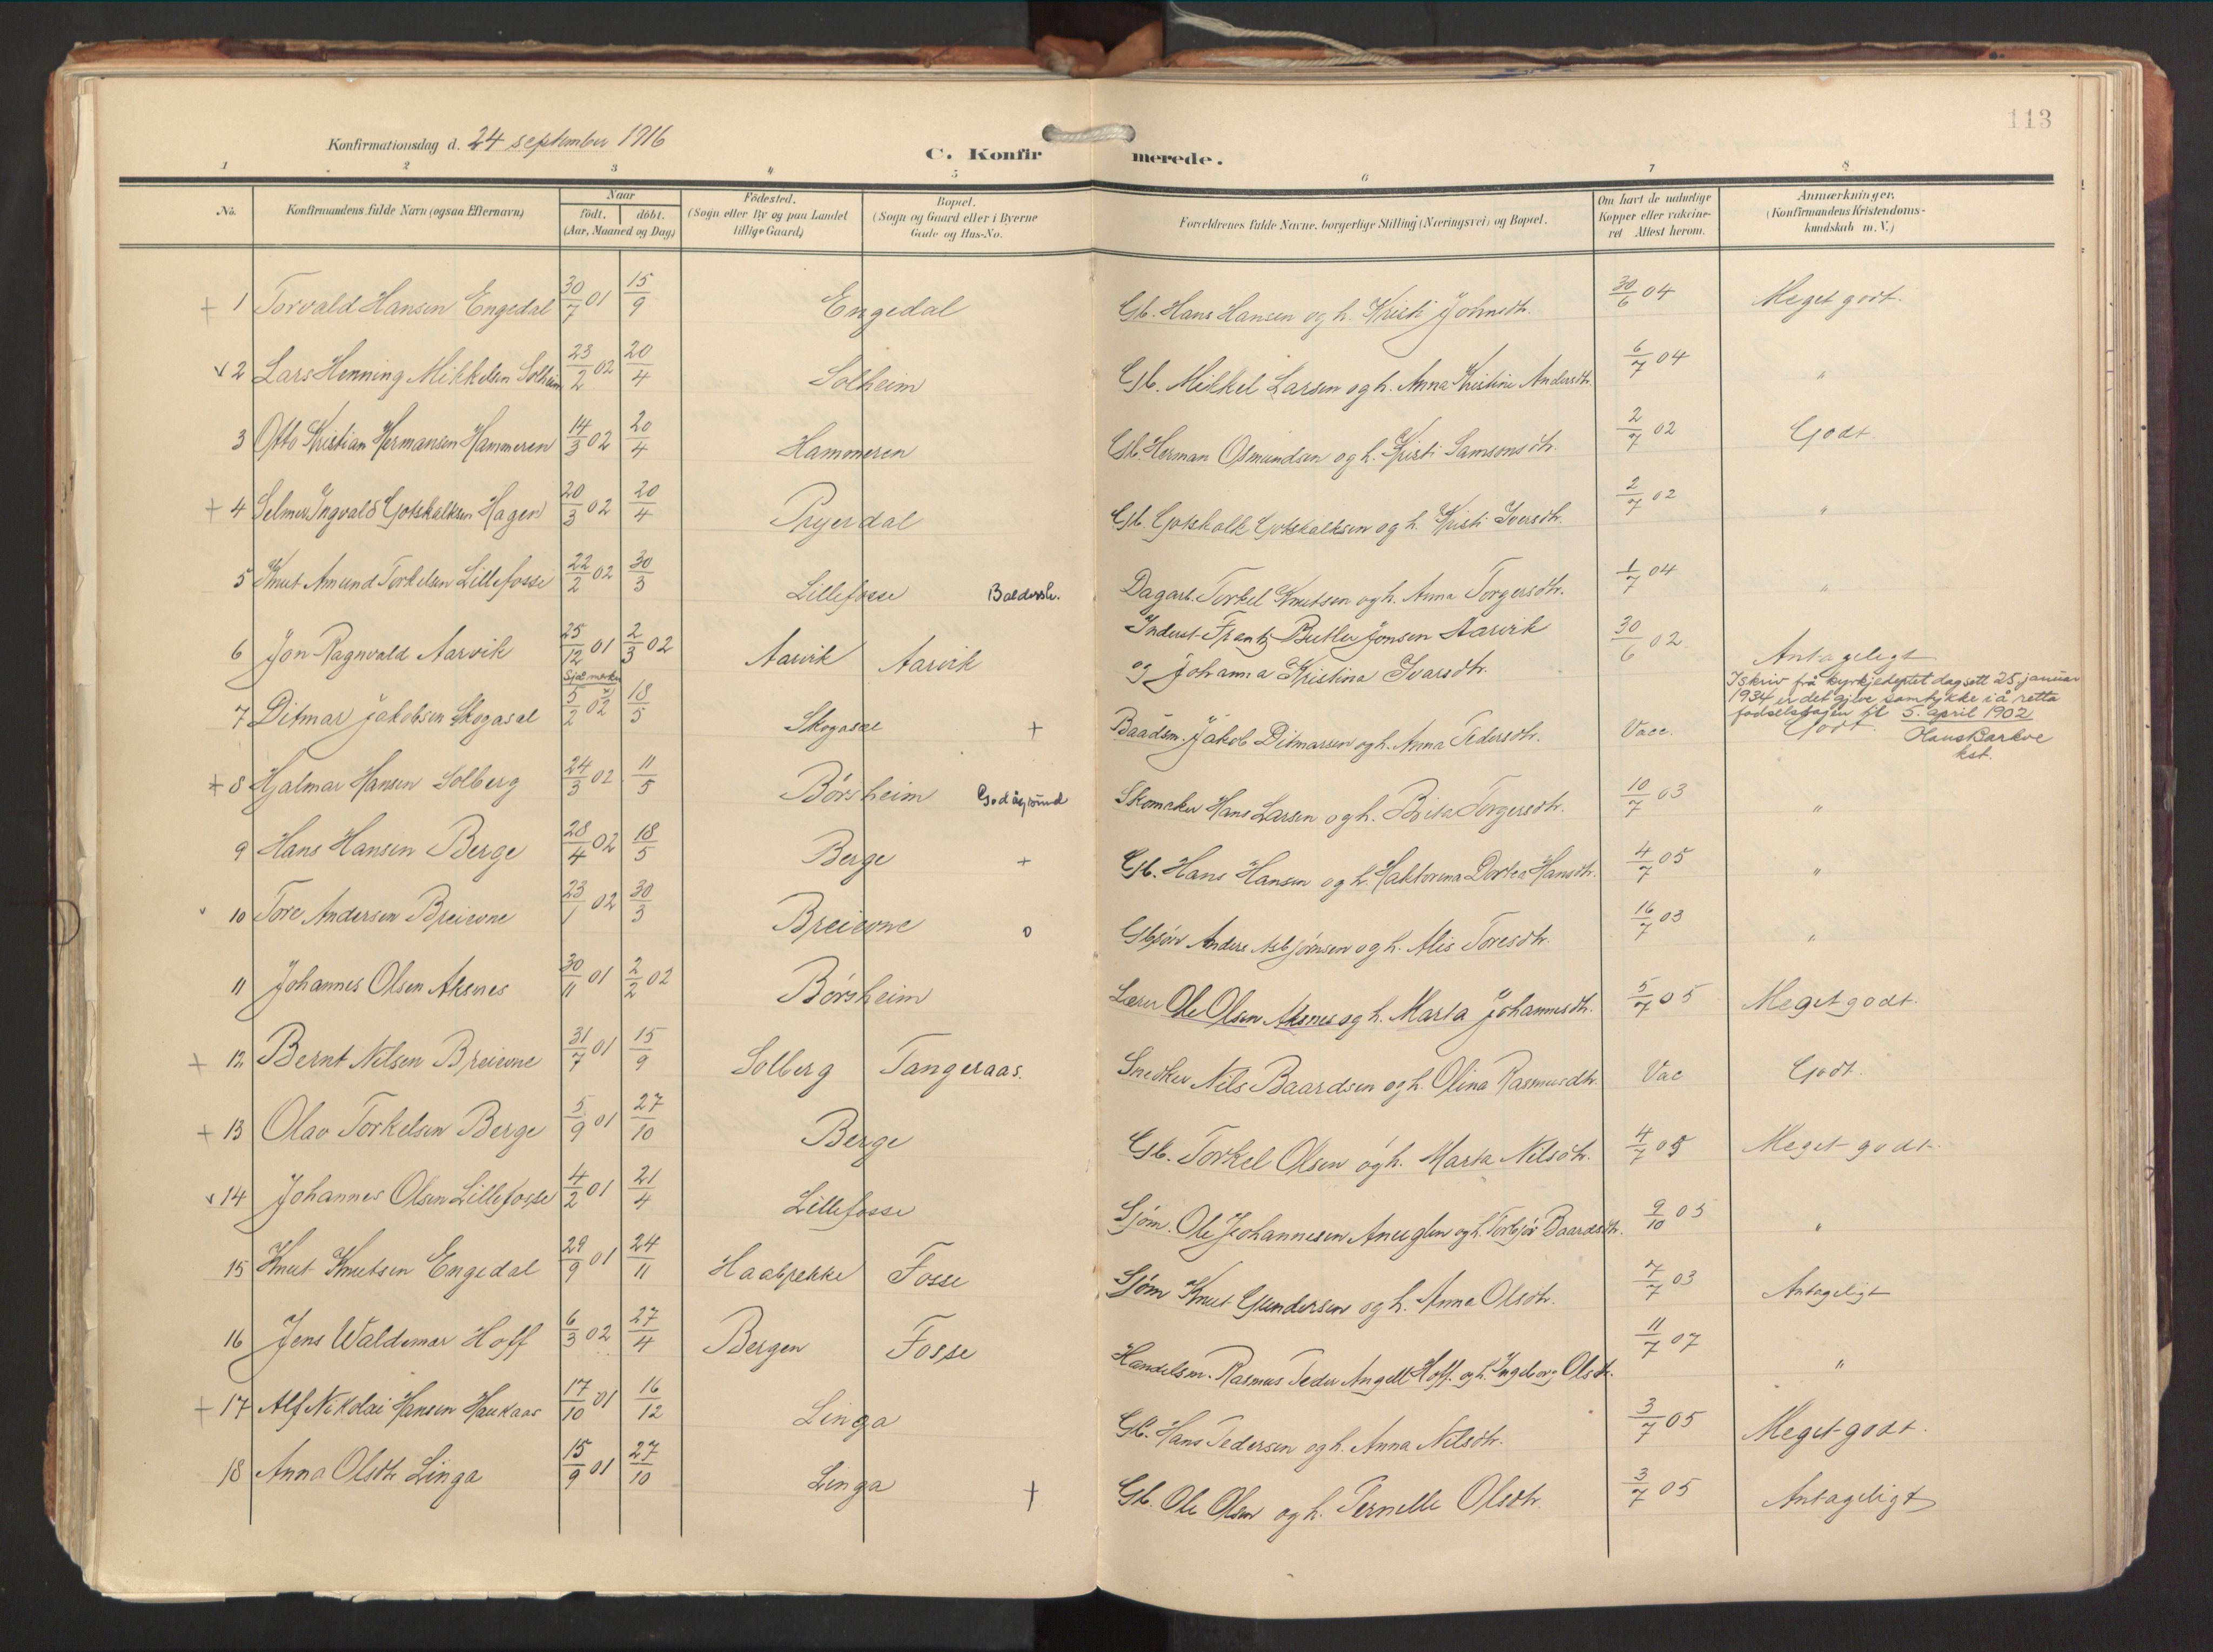 113
Konfirmationsdag d. 24 september 1916
C. Konfirmerede.
1 2 3 4 5 6 7 8
No. | Konfirmandens fulde Navn (ogsaa Efternavn) | Naar födt. döbt. (Aar, Maaned og Dag) | Födested. (Sogn eller By og paa Landet tillige Gaard) | Bopæl. (Sogn og Gaard eller i Byerne Gade og Hus-No. | Forældrenes fulde Navne, borgerlige Stilling (Næringsvei) og Bopæl. | Om havt de naturlige Kopper eller vakcineret Attest herom. | Anmærkninger. (Konfirmandens Kristendomskundskab m. V.)
+ 1 Torvald Hansen Engedal 30/7 01 15/9 Engedal Gb. Hans Hansen og h. Kristi Johnsdtr. 30/6 04 Meget godt.
v 2 Lars Henning Mikkelsen Solheim 23/2 02 20/4 Solheim Gb. Mikkel Larsen og h. Anna Kristine Andersdtr. 6/7 04 "
3 Otto Kristian Hermansen Hammeren 14/3 02 20/4 Hammeren Gb. Herman Osmundsen og h. Kristi Samsonsdtr. 2/7 02 Godt
+ 4 Selmer Ingvald Gotskalksen Hagen 20/3 02 20/4 Gb. Gotskalk Gotskalksen og h. Kristi Iversdtr. 2/7 02 "
5 Knut Amund Torkelsen Lillefosse 22/2 02 30/3 Lillefosse Dagarb. Torkel Knutsen og h. Anna Torgersdtr. 1/7 04 "
6 Jon Ragnvald Aarvik 25/12 01 2/3 02 Aarvik Aarvik Indust. Frantz Butler Jonsen Aarvik 30/6 02 Antageligt
og Johanna Kristina Ivarsdtr.
Sjå merkn
I skriv frå kyrkjedeptet dagsett 25 januar
1934 er det gjeve samtykke i å retta
fødselsdagen til 5. april 1902
7 Ditmar Jakobsen Skogasæl 5/2 02 18/5 Skogasæl + Baadsm. Jakob Ditmarsen og h. Anna Pedersdtr. Vacc. Godt.
kst.
+ 8 Hjalmar Hansen Solberg 24/3 02 11/5 Börsheim Godøysund Skomaker Hans Larsen og h. Brita Torgersdtr. 10/7 03 "
9 Hans Hansen Berge 28/4 02 18/5 Berge + Gb. Hans Hansen og h. Haktorina Dortea Hansdtr. 4/7 05 "
v 10 Tore Andersen Breievne 23/1 02 30/3 Breievne o Anders Asbjörnsen og h. Alis Toresdtr. 16/7 03 "
11 Johannes Olsen Aksnes 30/11 01 2/2 02 Börsheim Lærer Ole Olsen Aksnes og h. Marta Johannesdtr. 5/7 05 Meget godt.
+ 12 Bernt Nilsen Breievne 31/7 01 15/9 Solberg Tangeraas. Snedker Nils Baardsen og h. Olina Rasmusdtr. Vac Godt.
+ 13 Olav Torkelsen Berge 5/9 01 27/10 Berge Gb. Torkel Olsen og h. Marta Nilsdtr. 4/7 05 Meget godt
v 14 Johannes Olsen Lillefosse 4/2 01 21/4 Lillefosse Sjöm. Ole Johannesen Aneglen og h. Torbjör Baardsdtr. 9/10 03 "
15 Knut Knutsen Engedal 29/9 01 24/11 Haabrekke Fosse Sjöm Knut Gundersen og h. Anna Olsdtr. 7/7 03 Antageligt
16 Jens Waldemar Hoff 6/3 02 27/4 Bergen Fosse Handelsm. Rasmus Peder Angell Hoff. og h. Ingeborg Olsdtr. 11/7 07 "
+ 17 Alf Nikolai Hansen Haukaas 17/10 01 16/12 Linga Gb. Hans Pedersen og h. Anna Nilsdtr. 3/7 05 Meget godt.
18 Anna Olsdtr Linga 15/9 01 27/10 Linga + Gb. Ole Olsen og h. Pernille Olsdtr. 3/7 05 Antageligt